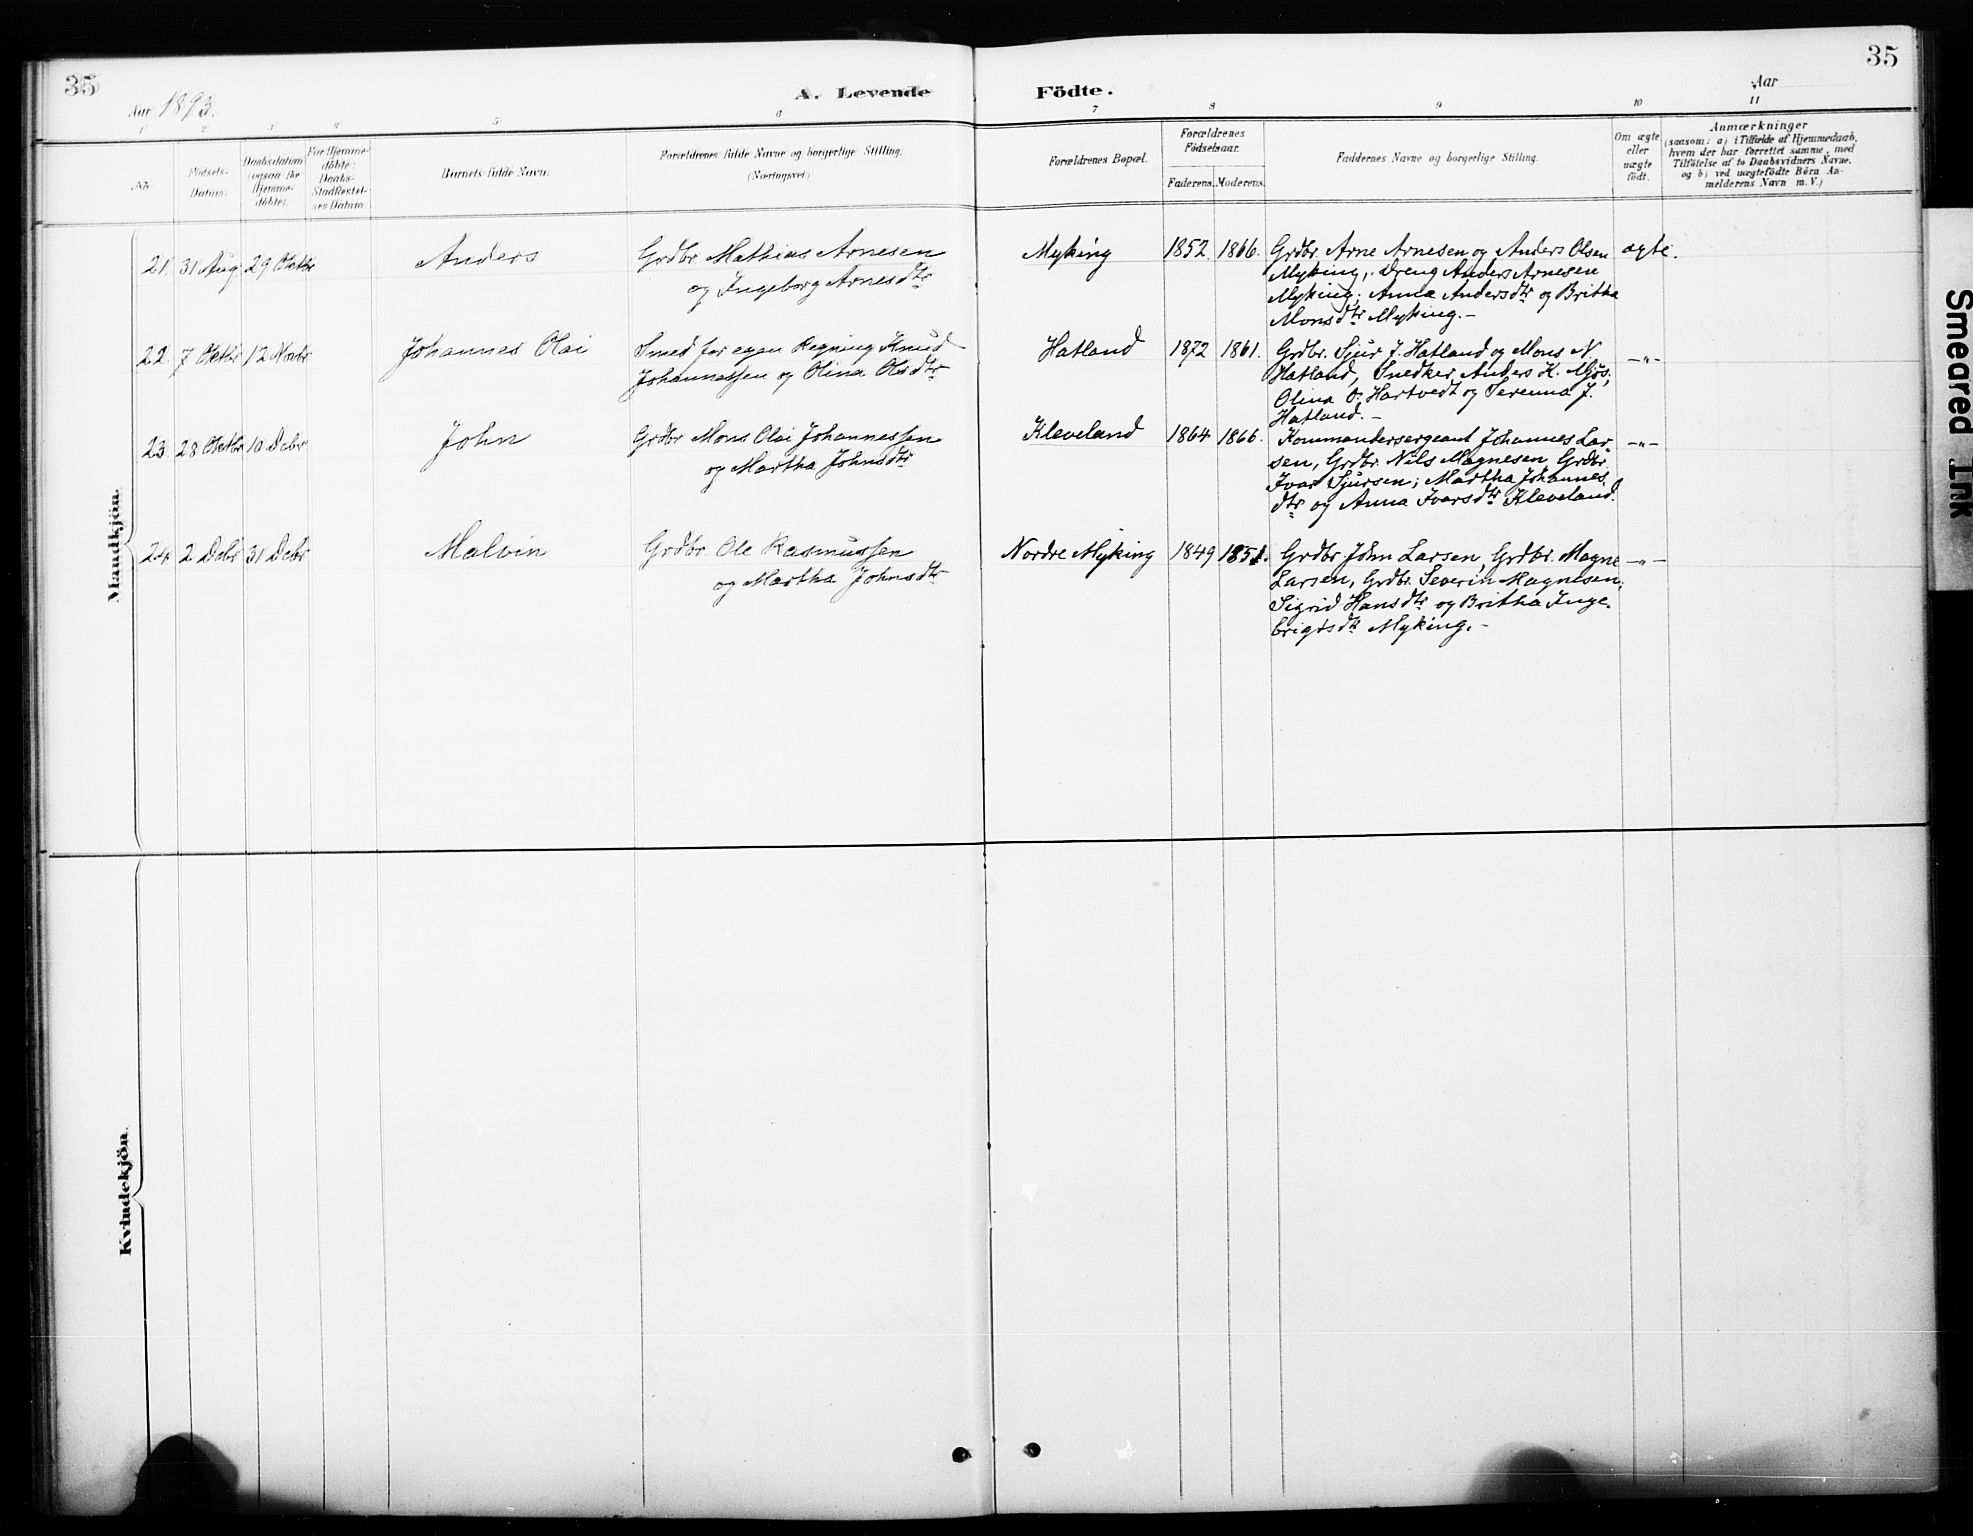 35
Aar 1893.
A. Levende Födte.
Aar
35
1 2 3 4 5 6 7 8 9 10 11
No.
Födsels-Datum.
Daabsdatum (ogsaa for Hjemme-döbte).
For Hjemme-döbte: Daabs-Stadfæstel-ses Datum.
Barnets fulde Navn.
Forældrenes fulde Navne og borgerlige Stilling. (Næringsvei.)
Forældrenes Bopæl.
Forældrenes Födselsaar.
Faderens. Moderens.
Faddernes Navne og borgerlige Stilling.
Om ægte eller uægte födt.
Anmærkninger
(saasom: a) i Tilfælde af Hjemmedaab,
hvem der har forrettet samme, med
Tilföielse af to Daabsvidners Navne.
og b) ved uægtefödte Börn An-
melderens Navn m. V.)
Mandkjön.
21. 31 Aug. 29 Oktbr Anders Grdbr Mathias Arnesen Myking 1852. 1866. Grdbr. Arne Arnesen og Anders Olsen ægte.
og Ingeborg Arnesdtr Myking, Dreng Anders Arnesen
Myking; Anna Andersdtr og Britha
Monsdtr Myking.-
22. 7 Oktbr 12 Novbr Johannes Olai Smed for egen Regning Knud Hatland 1872 1861. Grdbr. Sjur J. Hatland og Mons N. -"-
Johannessen og Olina Olsdtr Hatland, Snedker Anders K. Mjøs;
Olina O. Hartvedt og Serenna J.
Hatland.-
23. 28 Oktbr 10 Debr John Grdbr Mons Olai Johannessen Kleveland 1864 1866. Kommandersergeant Johannes Lar- -"-
og Martha Johnsdtr sen, Grdbr. Nils Magnesen, Grdbr.
Ivar Sjursen; Martha Johannes-
dtr og Anna Ivarsdtr Kleveland.
24. 2 Debr 31 Debr Malvin Grdbr. Ole Rasmussen Nordre Myking 1849 1851. Grdbr. John Larsen, Grdbr. Magne -"-
og Martha Johnsdtr Larsen, Grdbr. Severin Magnesen;
Sigrid Hansdtr og Britha Inge-
brigtsdtr Myking.-
Kvindekjön.
Smeared Ink